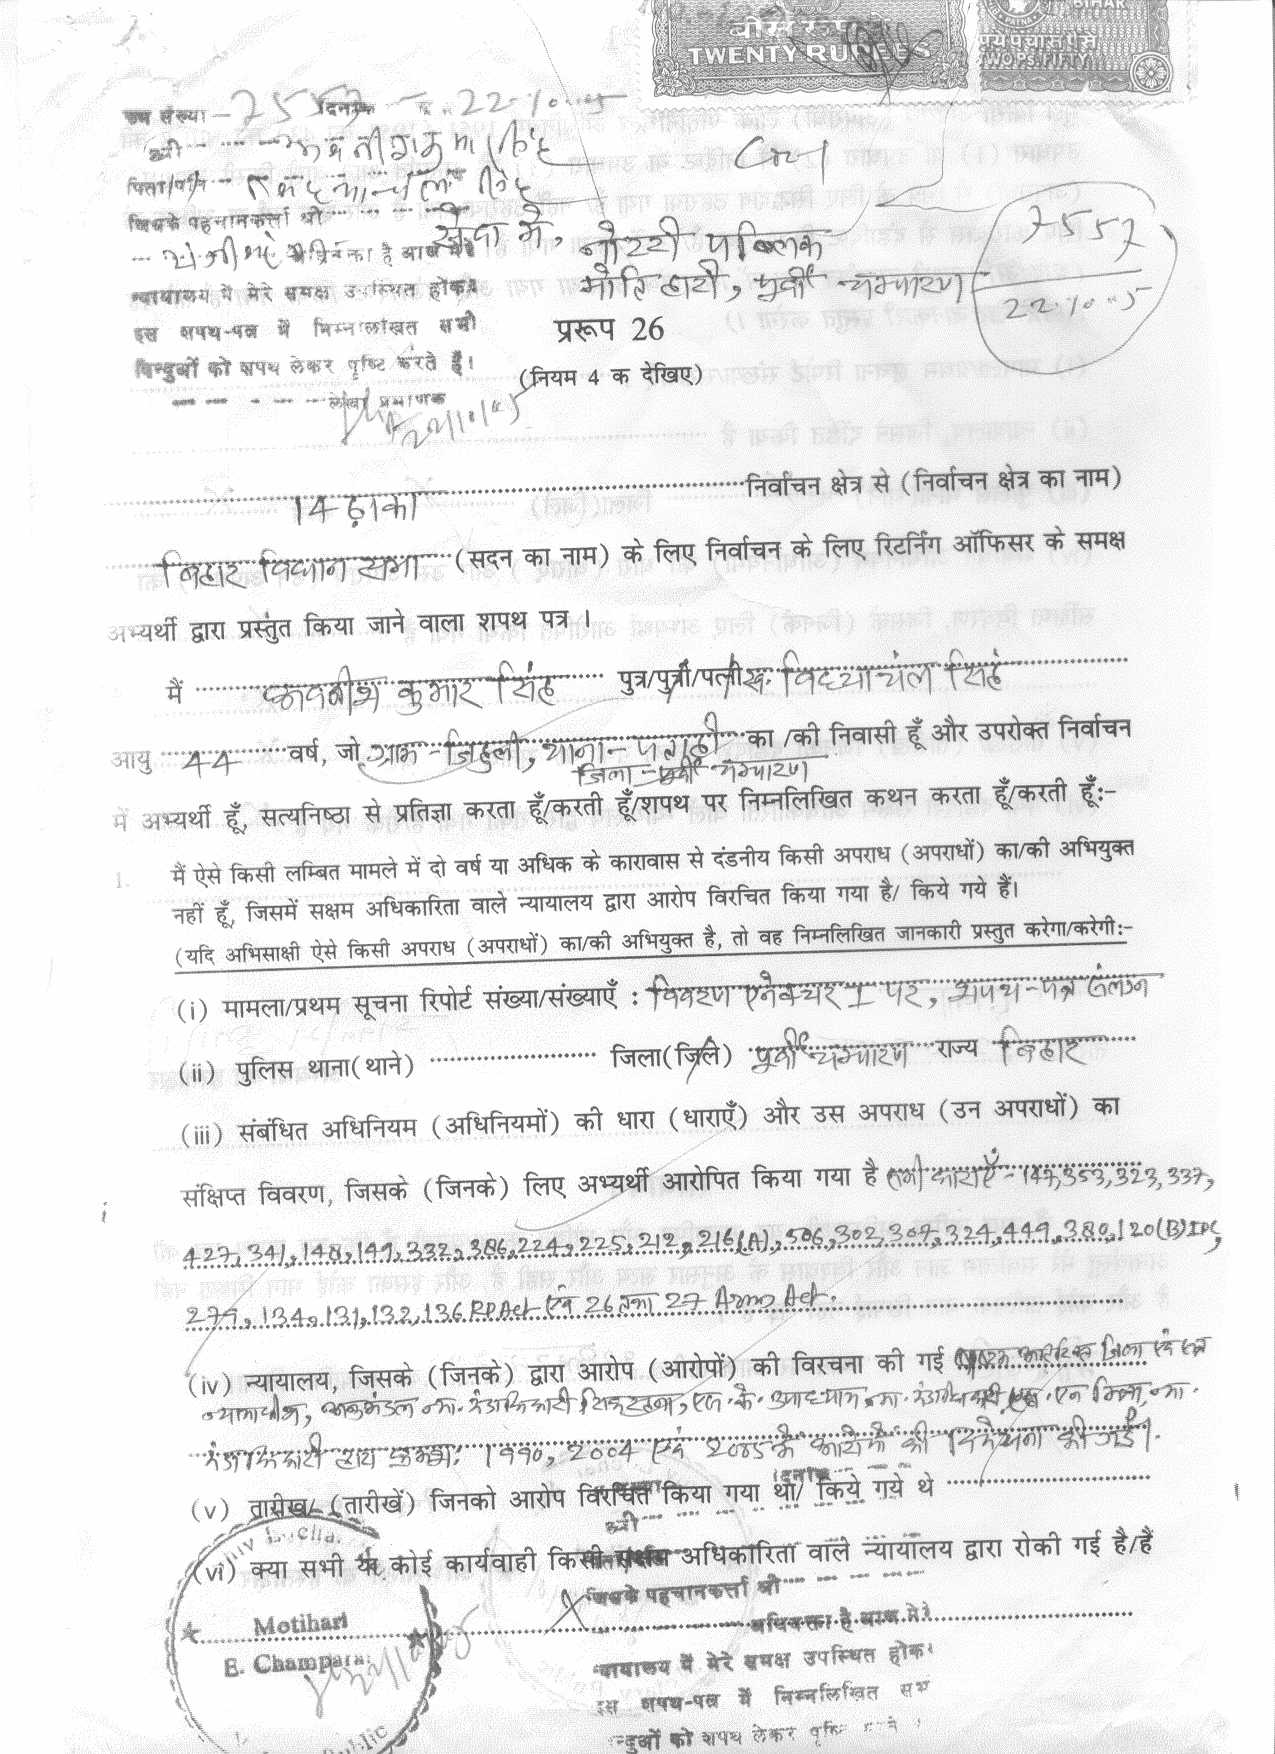 बीस रुपये
TWENTY RUPEES
BIHAR
रुपये पचास पैसे
TWO PS. FIFTY
क्रम संख्या - 7557 दिनांक 22.10.05
श्री
पिता/पति
जिसके पहचानकर्त्ता श्री
अधिवक्ता है आज मेरे
न्यायालय में मेरे समक्ष उपस्थित होकर
इस शपथ-पत्र में निम्नलिखित सभी
बिन्दुओं को शपथ लेकर पृष्टि करते हैं।
लेख्य प्रमाणक
22/10/05
सेवा में, नोटरी पब्लिक
मोतिहारी, पूर्वी चम्पारण
7557
22.10.05
प्ररूप 26
(नियम 4 क देखिए)
14 ढ़ाका निर्वाचन क्षेत्र से (निर्वाचन क्षेत्र का नाम)
बिहार विधान सभा (सदन का नाम) के लिए निर्वाचन के लिए रिटर्निंग ऑफिसर के समक्ष
अभ्यर्थी द्वारा प्रस्तुत किया जाने वाला शपथ पत्र ।
मैं अवनीश कुमार सिंह पुत्र/पुत्री/पत्नी स्व. विद्याचंल सिंह
आयु 44 वर्ष, जो ग्राम-जिहुली, थाना-पताही का /की निवासी हूँ और उपरोक्त निर्वाचन
जिला-पूर्वी चम्पारण
में अभ्यर्थी हूँ, सत्यनिष्ठा से प्रतिज्ञा करता हूँ/करती हूँ/शपथ पर निम्नलिखित कथन करता हूँ/करती हूँ:-
1. मैं ऐसे किसी लम्बित मामले में दो वर्ष या अधिक के कारावास से दंडनीय किसी अपराध (अपराधों) का/की अभियुक्त
नहीं हूँ, जिसमें सक्षम अधिकारिता वाले न्यायालय द्वारा आरोप विरचित किया गया है/ किये गये हैं।
(यदि अभिसाक्षी ऐसे किसी अपराध (अपराधों) का/की अभियुक्त है, तो वह निम्नलिखित जानकारी प्रस्तुत करेगा/करेगी:-
(i) मामला/प्रथम सूचना रिपोर्ट संख्या/संख्याएँ : विवरण एनेक्चर I पर, शपथ-पत्र संलग्न
(ii) पुलिस थाना(थाने) जिला(जिले) पूर्वी चम्पारण राज्य बिहार
(iii) संबंधित अधिनियम (अधिनियमों) की धारा (धाराएँ) और उस अपराध (उन अपराधों) का
संक्षिप्त विवरण, जिसके (जिनके) लिए अभ्यर्थी आरोपित किया गया है सभी धाराएँ - 147, 353, 323, 337,
427, 341, 148, 149, 332, 386, 224, 225, 212, 216(A), 506, 302, 307, 324, 449, 380, 120(B) IPC,
279, 134, 131, 132, 136 RP Act एवं 26 तथा 27 Arms Act.
(iv) न्यायालय, जिसके (जिनके) द्वारा आरोप (आरोपों) की विरचना की गई जिला एवं सत्र
न्यायाधीश, अनुमंडल न्या. दंडाधिकारी सिकरहना, एस. के. उपाध्याय, न्या. दंडाधिकारी, एस. एन मिश्रा, न्या.
दंडाधिकारी द्वारा क्रमशः 1990, 2004 एवं 2005 के आरोपों की विवेचना की गई।
(v) तारीख/ (तारीखें) जिनको आरोप विरचित किया गया था/ किये गये थे
(vi) क्या सभी या कोई कार्यवाही किसी सक्षम अधिकारिता वाले न्यायालय द्वारा रोकी गई है/हैं
दिनांक
श्री
जिसके पहचानकर्त्ता श्री
अधिवक्ता है आज मेरे
न्यायालय में मेरे समक्ष उपस्थित होकर
इस शपथ-पत्र में निम्नलिखित सभी
बिन्दुओं को शपथ लेकर पृष्टि
Motihari
E. Champaran
Public